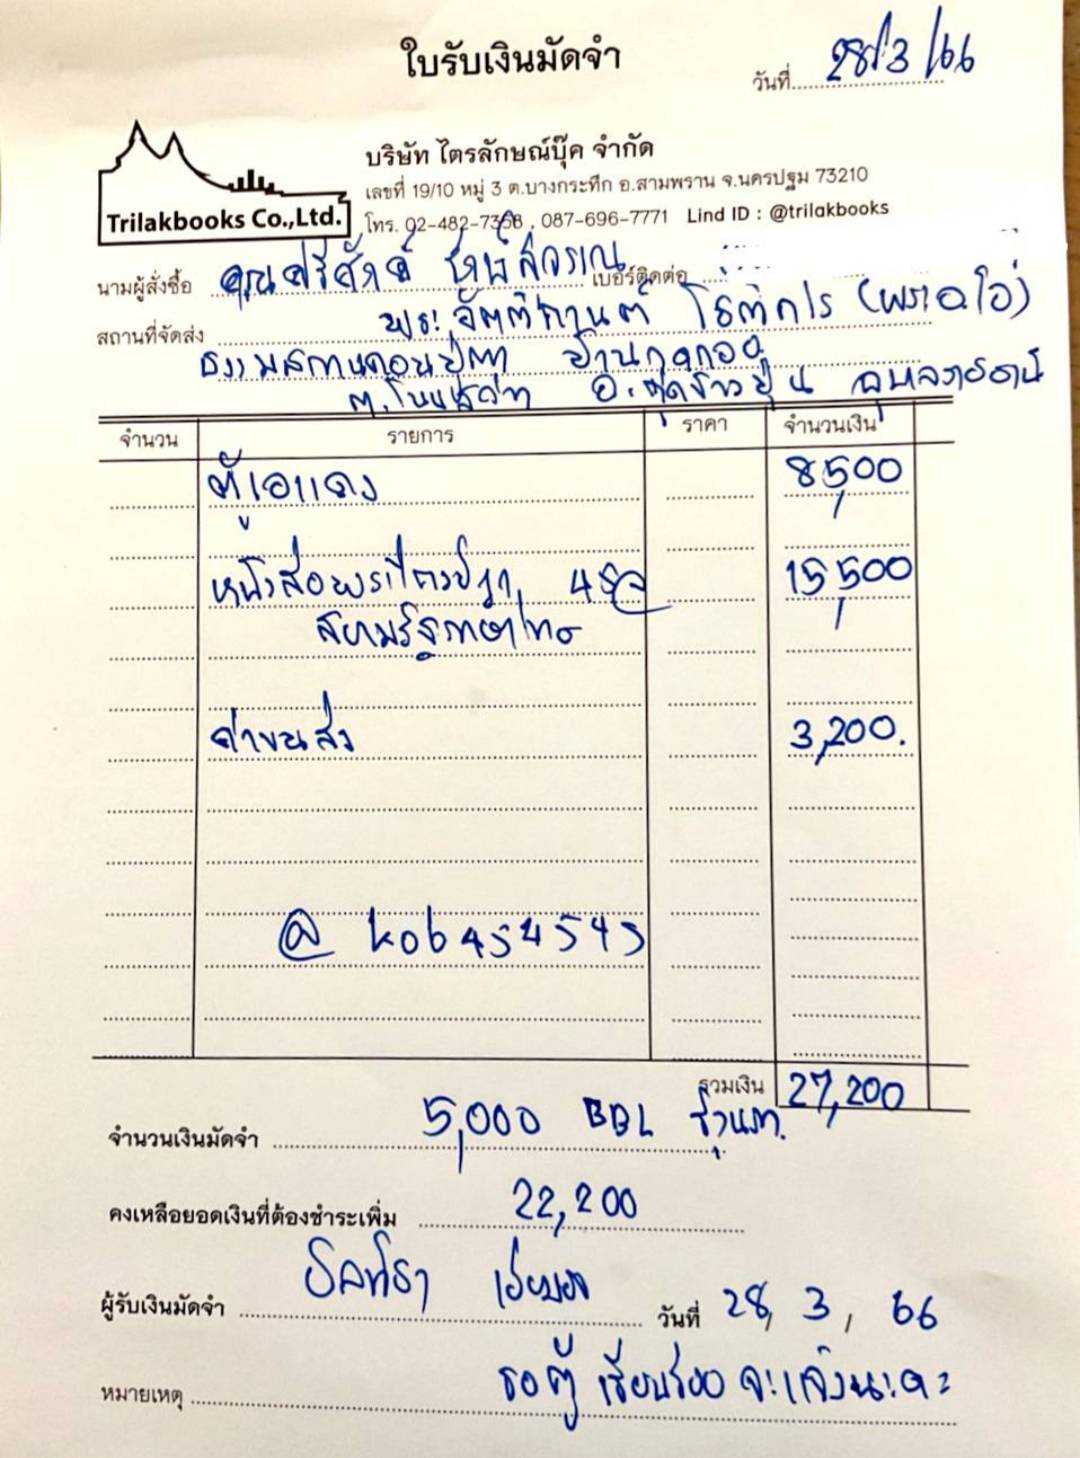 ใบรับเงินมัดจำ
วันที่ 28/3/66
บริษัท ไตรลักษณ์บุ๊ค จำกัด
เลขที่ 19/10 หมู่ 3 ต.บางกระทึก อ.สามพราน จ.นครปฐม 73210
Trilakbooks Co.,Ltd.
โทร. 02-482-7358 , 087-696-7771 Lind ID : @trilakbooks
นามผู้สั่งซื้อ คุณศรีศักดิ์ เบอร์ติดต่อ
สถานที่จัดส่ง พระ (พระอโ)
ธรรมสถานดอนปู่ตา บ้านกุดกอง
ต. อ.กุดข้าวปุ้น อุบลราชธานี
จำนวน รายการ ราคา จำนวนเงิน
ตู้เอแดง 8,500
หนังสือพระไตรปิฎก 45 15,500
สยามรัฐภาษาไทย
ค่าขนส่ง 3,200.
@ kob454545
รวมเงิน 27,200
จำนวนเงินมัดจำ 5,000 BBL
คงเหลือยอดเงินที่ต้องชำระเพิ่ม 22,200
ผู้รับเงินมัดจำ วันที่ 28, 3, 66
หมายเหตุ รอตู้ เรียบร้อย จะแจ้งนะคะ